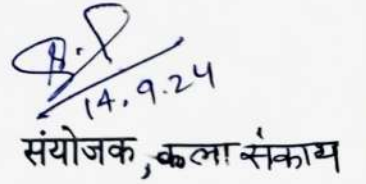 14.9.24
संयोजक, कला संकाय